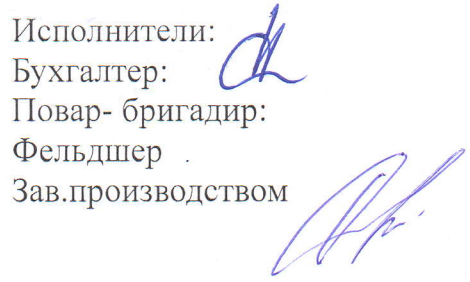 Исполнители:
Бухгалтер:
Повар- бригадир:
Фельдшер .
Зав.производством